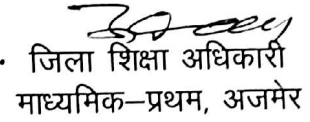 जिला शिक्षा अधिकारी
माध्यमिक–प्रथम, अजमेर